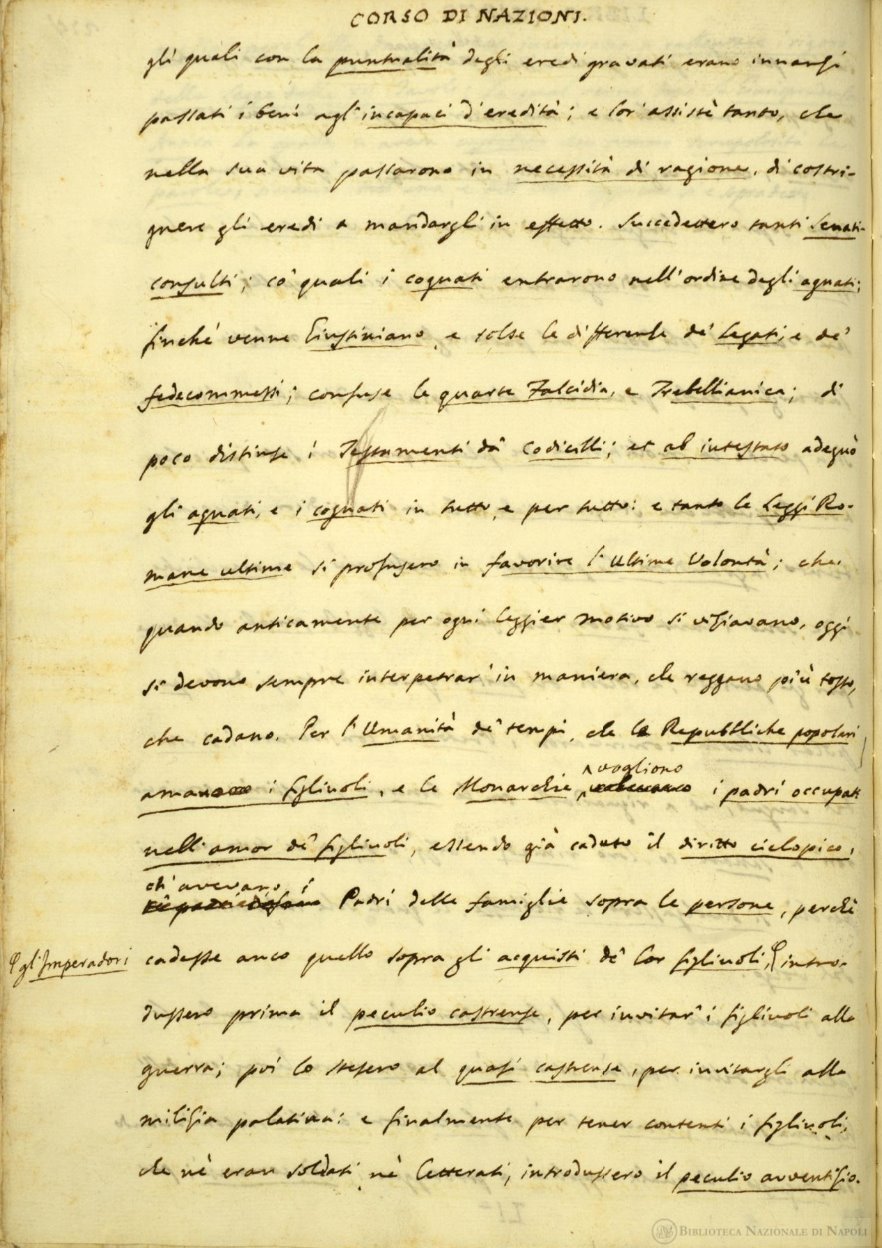 CORSO DI NAZIONI.
gli quali con la puntualità degli eredi gravati erano innanzi
passati i beni agl'incapaci d'eredità; e lor'assistè tanto, che
nella sua vita passarono in necessità di ragione, di costri-
gnere gli eredi a mandargli in effetto. Succedettero tanti Senati-
consulti; co' quali i cognati entrarono nell'ordine degli agnati;
finchè venne Giustiniano, e tolse le differenze de' Legati, e de'
fedecommessi; confuse le quarte Falcidia, e Trebellianica; di
poco distinse i Testamenti da' Codicilli; et ab intestato adeguò
gli agnati, e i cognati in tutto, e per tutto: e tanto le Leggi Ro-
mane ultime si profusero in favorire l'Ultime Volontà; che,
quando anticamente per ogni leggier motivo si viziavano, oggi
si devono sempre interpetrar' in maniera, che reggano più tosto,
che cadano. Per l'Umanità de' tempi, che le Repubbliche popolari
amano i figliuoli, e le Monarchie vogliono i padri occupati
nell'amor de' figliuoli, essendo già caduto il diritto ciclopico,
ch'avevano i
Padri delle famiglie sopra le persone, perchè
gl'Imperadori
cadesse anco quello sopra gli acquisti de' lor figliuoli, intro-
dussero prima il peculio castrense, per invitar' i figliuoli alla
guerra; poi lo stesero al quasi castrense, per invitargli alla
milizia palatina: e finalmente per tener contenti i figliuoli,
che nè eran soldati nè letterati, introdussero il peculio avventizio.
BIBLIOTECA NAZIONALE DI NAPOLI